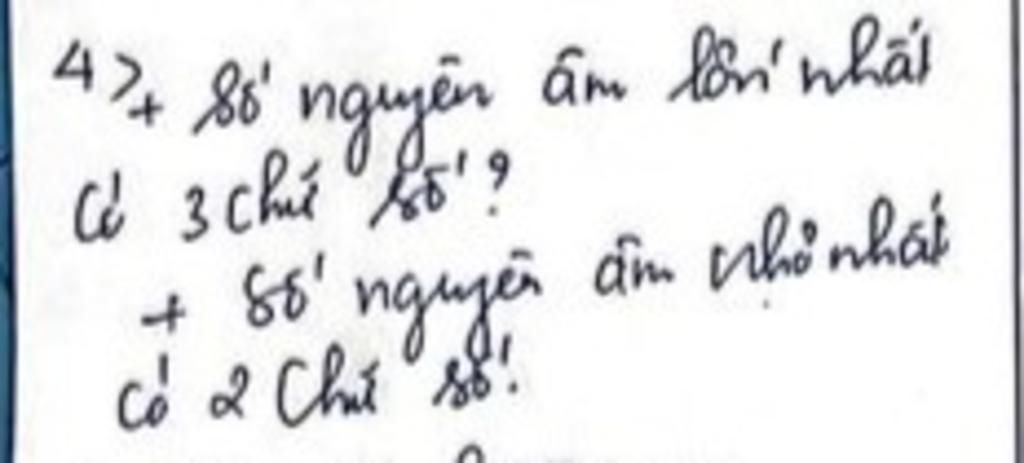 4> + Số nguyên âm lớn nhất
Có 3 chữ số?
+ Số nguyên âm nhỏ nhất
có 2 Chữ số!